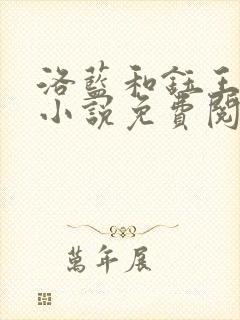 洛藍和鈺王
小說免費閱
萬年展